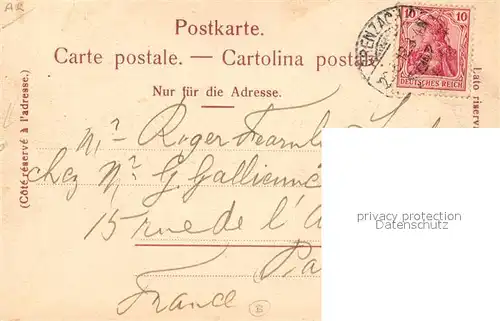 AR
Postkarte.
Carte postale. — Cartolina postale
Nur für die Adresse.
(Côté réservé à l'adresse.)
Lato riserv
GRENZACH
10 10
DEUTSCHES REICH
Mr Roger
chez Mr G. Gallienne
15 rue de l'A
Pa
France
privacy protection
B